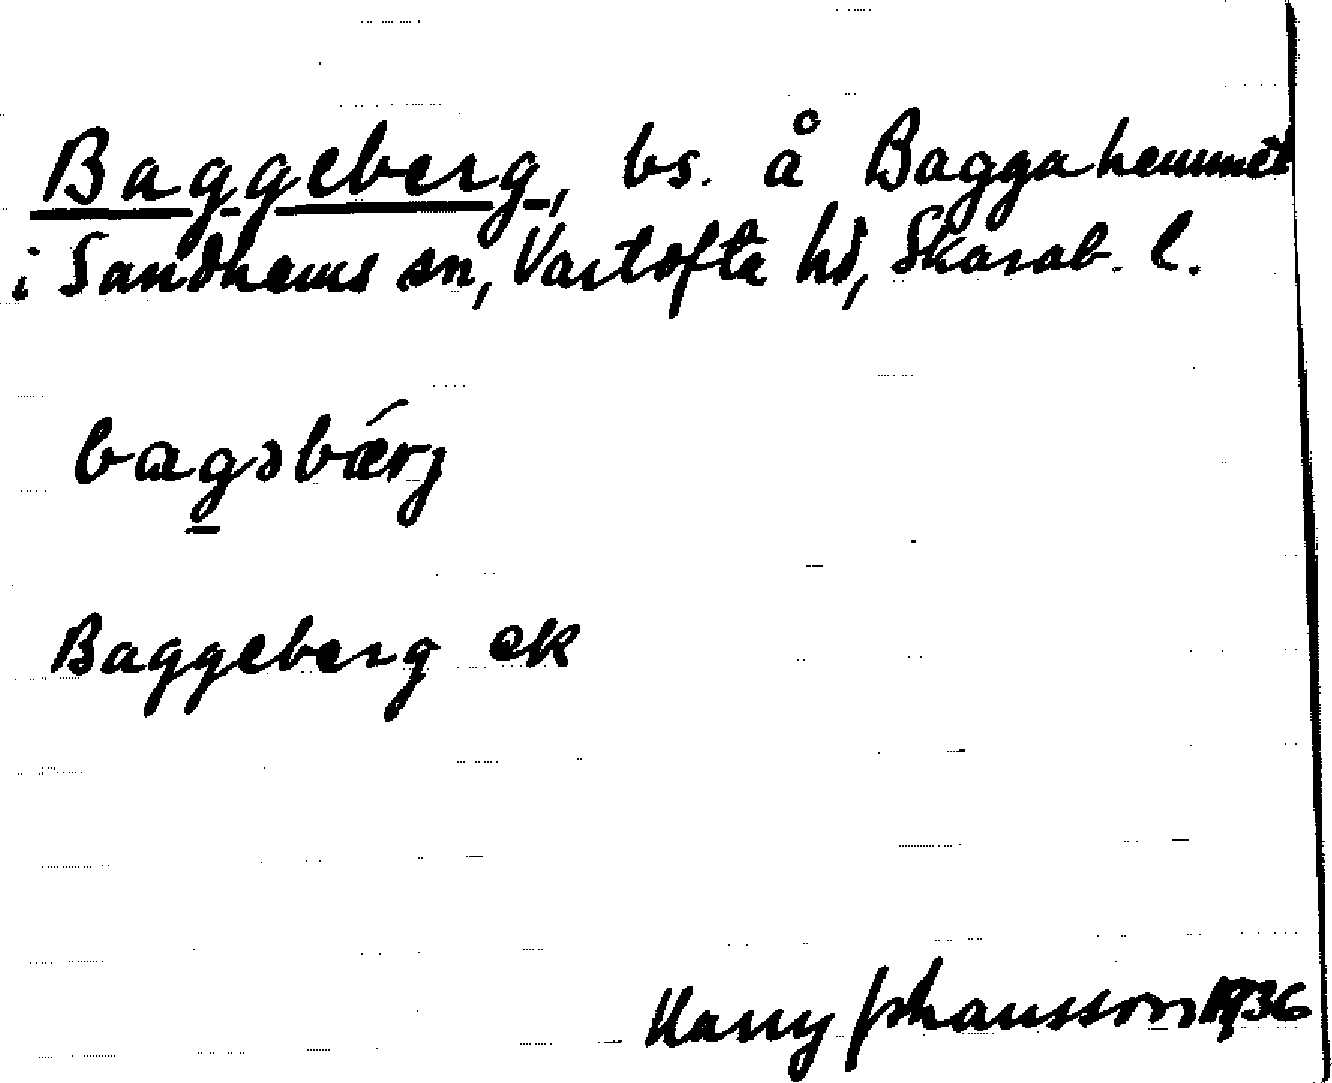 Baggeberg, bs. å Baggahemmet
i Sandhems sn, Vartofta hd, Skarab. l.
bagəbǽrj
Baggeberg ek
Harry Johansson 1936